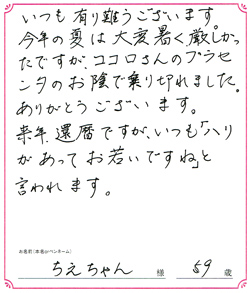 いつも有り難うございます。
今年の夏は大変暑く厳しかっ
たですが、ココロさんのプラセ
ンタのお陰で乗り切れました。
ありがとうございます。
来年、還暦ですが、いつも「ハリ
があってお若いですね」と
言われます。
お名前（本名orペンネーム）
ちえちゃん 様 59 歳